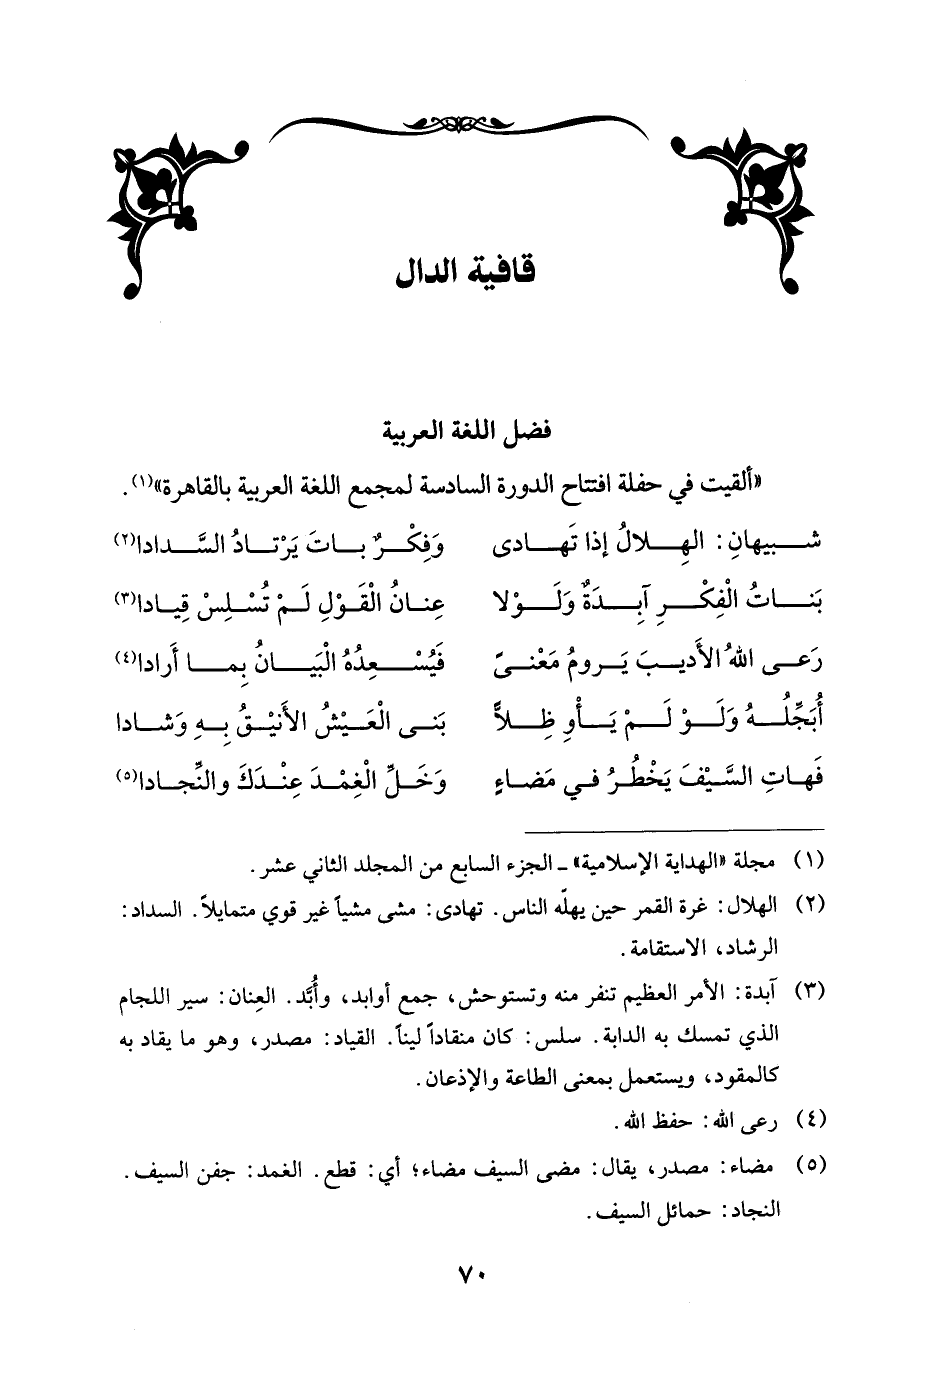 قافية الدال
فضل اللغة العربية
«ألقيت في حفلة افتتاح الدورة السادسة لمجمع اللغة العربية بالقاهرة»(١).
شبيهانِ: الهِلالُ إذا تَهادى وَفِكْرٌ باتَ يَرْتادُ السَّدادا(٢)
بَناتُ الْفِكْرِ آبِدَةٌ وَلَوْلا عِنانُ الْقَوْلِ لَمْ تُسْلِسْ قِيادا(٣)
رَعى اللهُ الأَديبَ يَرومُ مَعْنىً فَيُسْعِدُهُ الْبَيانُ بِما أَرادا(٤)
أُبَجِّلُهُ وَلَوْ لَمْ يَأْوِ ظِلاًّ بَنى الْعَيْشُ الأَنيْقُ بِهِ وَشادا
فَهاتِ السَّيْفَ يَخْطُرُ في مَضاءٍ وَخَلِّ الْغِمْدَ عِنْدَكَ والنِّجادا(٥)
(١) مجلة «الهداية الإسلامية» ـ الجزء السابع من المجلد الثاني عشر.
(٢) الهلال: غرة القمر حين يهلّه الناس. تهادى: مشى مشياً غير قوي متمايلاً. السداد:
الرشاد، الاستقامة.
(٣) آبدة: الأمر العظيم تنفر منه وتستوحش، جمع أوابد، وأُبَّد. العِنان: سير اللجام
الذي تمسك به الدابة. سلس: كان منقاداً ليناً. القياد: مصدر، وهو ما يقاد به
كالمقود، ويستعمل بمعنى الطاعة والإذعان.
(٤) رعى الله: حفظ الله.
(٥) مضاء: مصدر، يقال: مضى السيف مضاء؛ أي: قطع. الغمد: جفن السيف.
النجاد: حمائل السيف.
٧٠